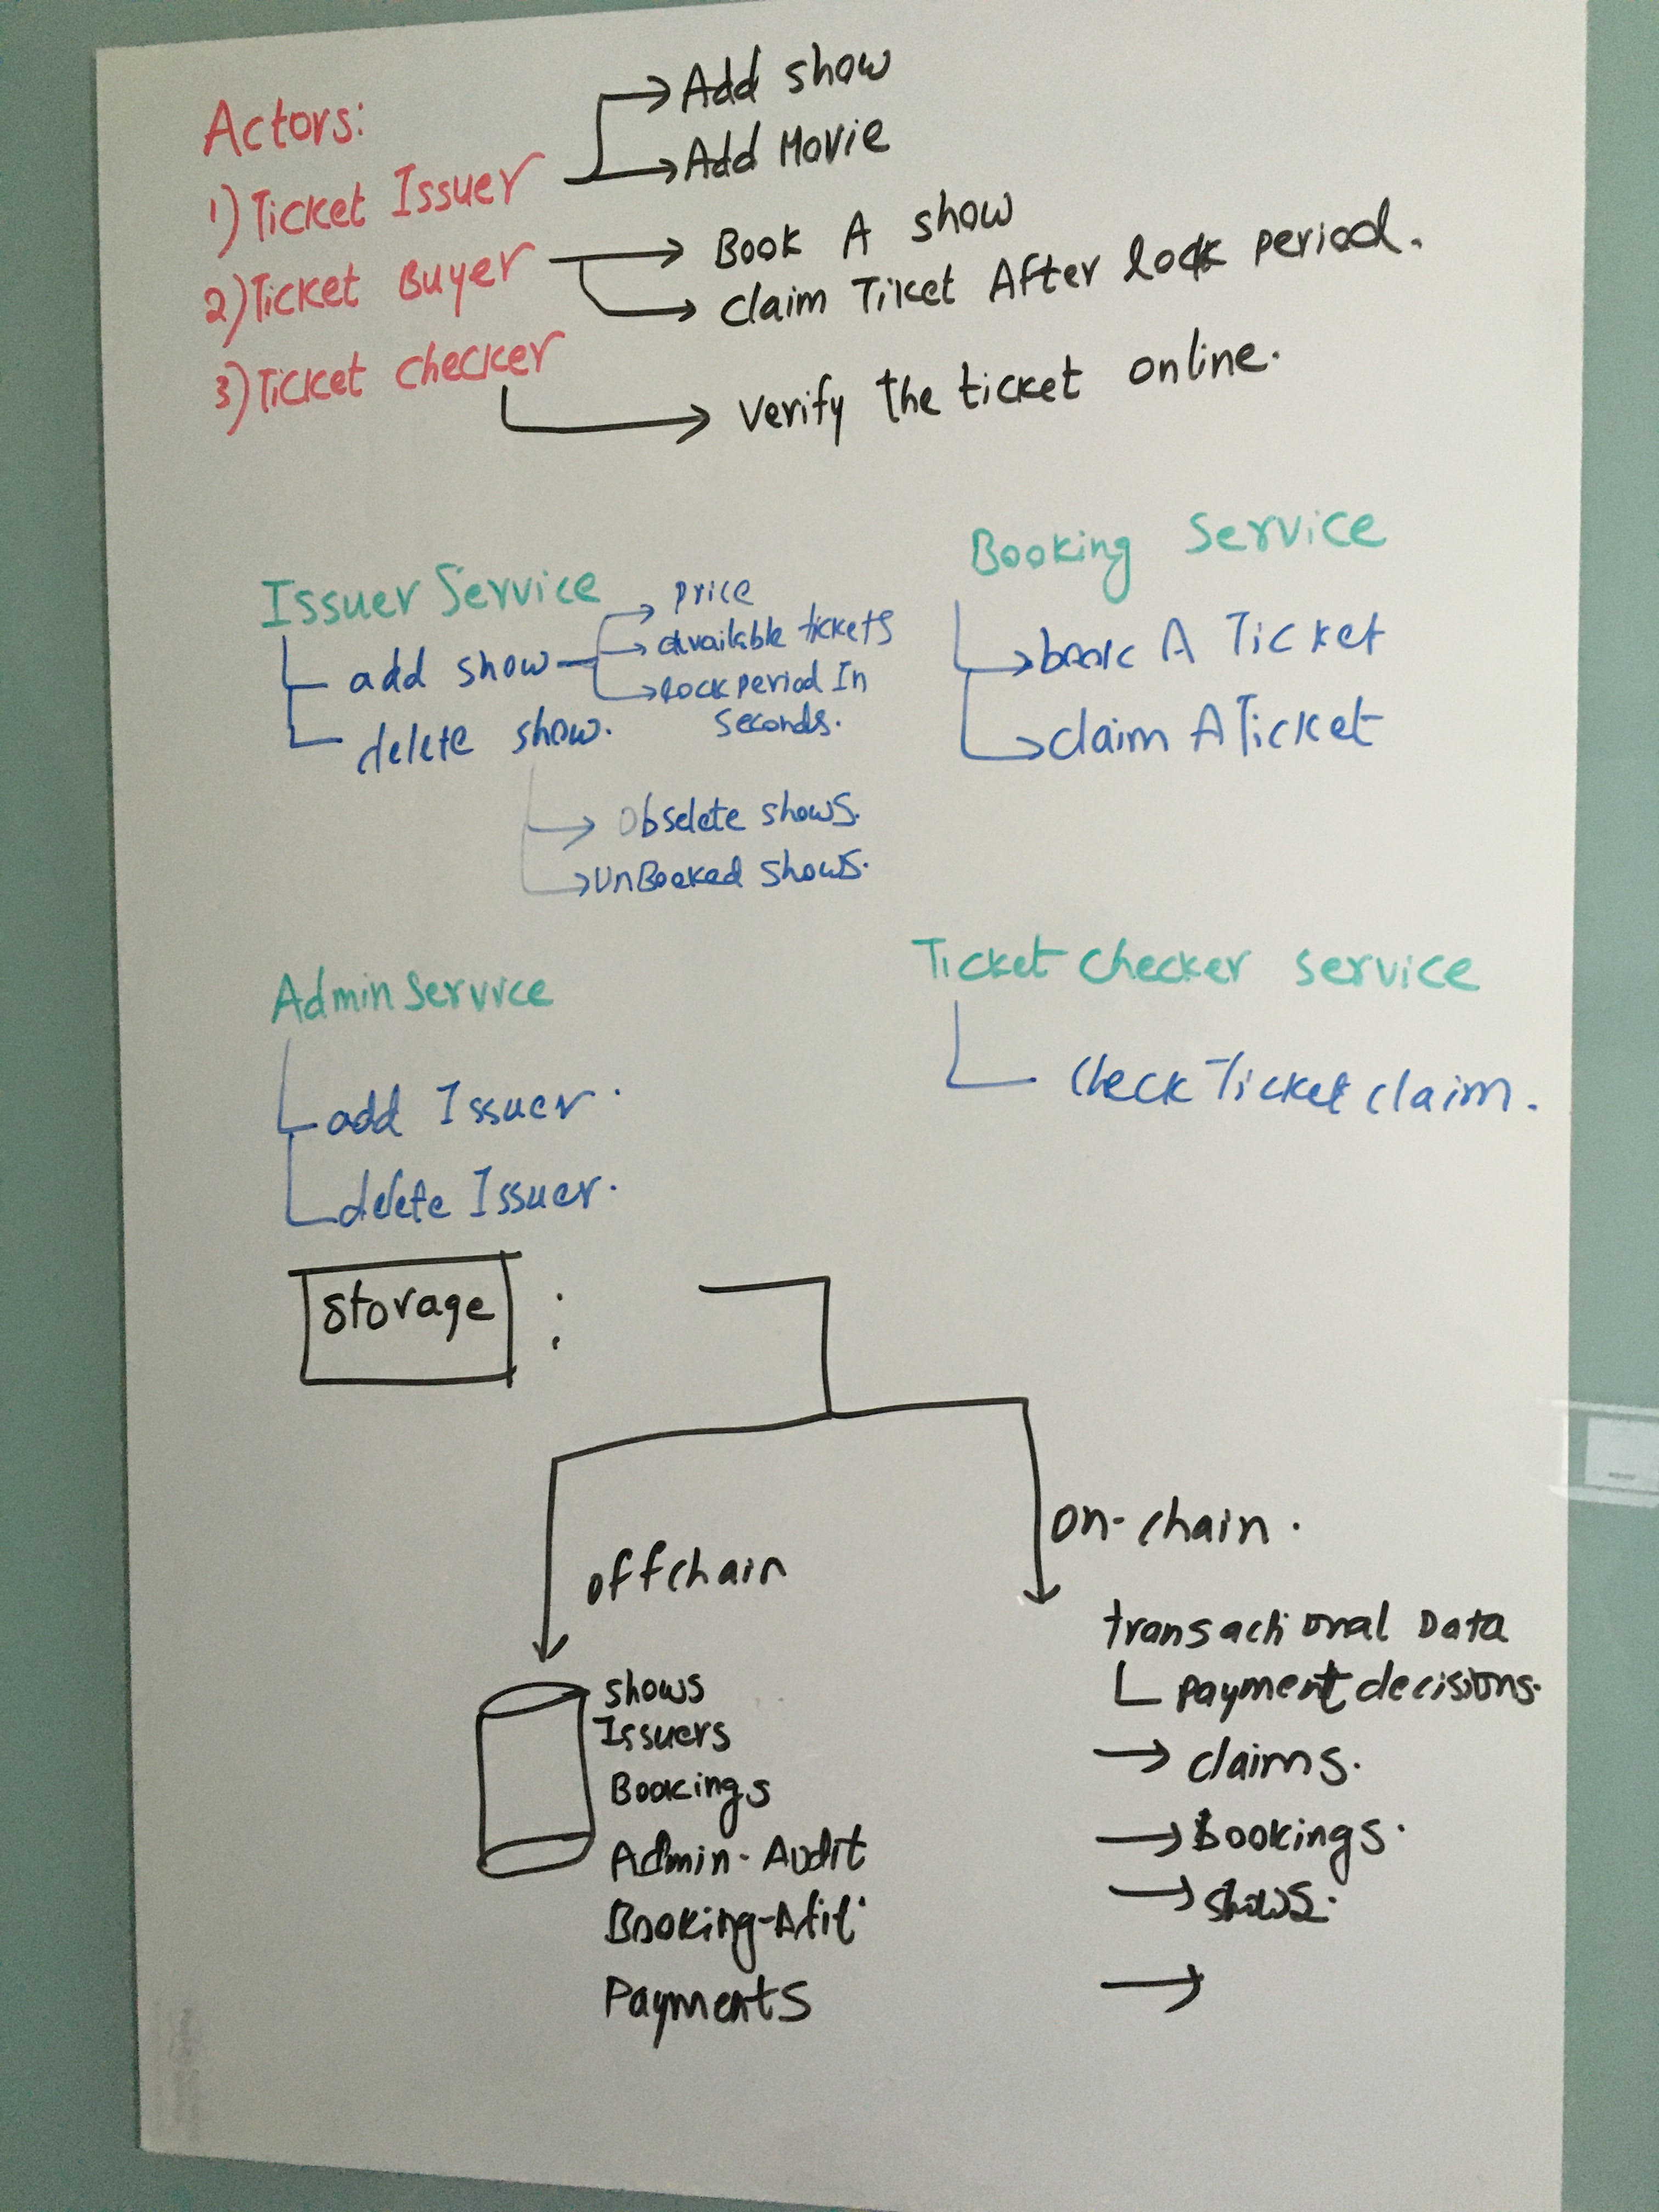 Actors:
1) Ticket Issuer
Add show
Add Movie
2) Ticket Buyer
Book A show
claim Tiket After lock period.
3) Ticket checker
verify the ticket online.
Issuer Service
add show
price
available tickets
lock period In
seconds.
delete show.
Obselete shows.
UnBooked shows.
Booking Service
book A Ticket
claim A Ticket
Admin Service
add Issuer.
delete Issuer.
Ticket checker service
check Ticket claim.
storage :
offchain
shows
Issuers
Bookings
Admin-Audit
Booking-Atit
Payments
on-chain.
transactional Data
payment decisions.
claims.
bookings.
shows.